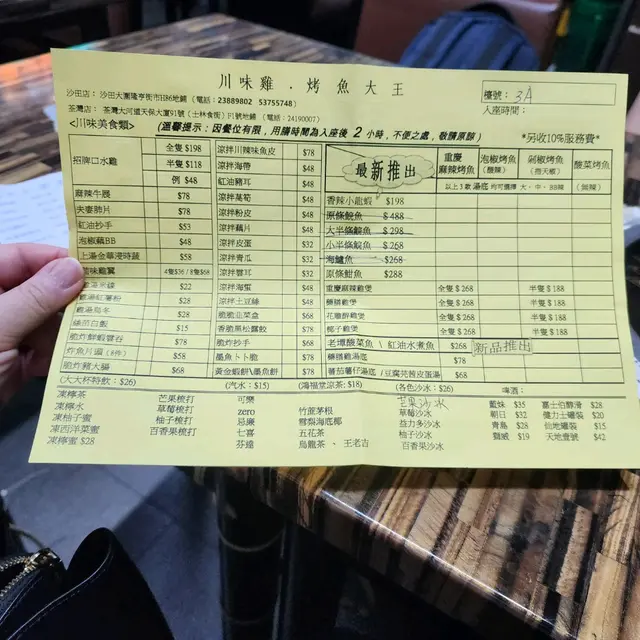 川味雞．烤魚大王
沙田店： 沙田大圍隆亨街市H86地鋪 （電話：23889802 53755748）
荃灣店： 荃灣大河道天保大廈91號（士林食街）F1號地鋪（電話：24190007）
檯號： 3A
入座時間：
<川味美食類> (溫馨提示：因餐位有限，用膳時間為入座後 2 小時，不便之處，敬請原諒) *另收10%服務費*
招牌口水雞 全隻 $198
半隻 $118
例 $48
麻辣牛𦟌 $78
夫妻肺片 $78
紅油抄手 $53
泡椒藕BB $48
上湯金華浸時蔬 $58
4隻$36 / 8隻$68
$22
$28
雞湯烏冬 $28
絲苗白飯 $15
脆炸鮮蝦雲吞 $78
炸魚片頭（8件） $58
脆炸豬大腸 $68
涼拌川辣味魚皮 $78
涼拌海帶 $48
紅油豬耳 $48
涼拌萵筍 $48
涼拌粉皮 $48
涼拌皮蛋 $32
涼拌青瓜 $32
涼拌雲耳 $32
涼拌海蜇 $48
涼拌土豆絲 $48
脆脆韭菜盒 $68
香脆黑松露餃 $78
脆炸抄手 $68
墨魚卜卜脆 $78
黃金蝦餅\墨魚餅 $78
最新推出
重慶麻辣烤魚
泡椒烤魚（酸辣）
剁椒烤魚（指天椒）
酸菜烤魚（無辣）
以上3款湯底均可選擇 大、中、BB辣
香辣小龍蝦 $198
原條鯇魚 $488
大半條鯇魚 $298
小半條鯇魚 $268
海鱸魚 $268
原條鮰魚 $288
重慶麻辣雞煲 全隻 $268 半隻 $188
藥膳雞煲 全隻 $268 半隻 $188
花膠醉雞煲 全隻 $268 半隻 $188
椰子雞煲 全隻 $268 半隻 $188
老壇酸菜魚 \ 紅油水煮魚 $268 新品推出
藥膳雞湯底 $78
蕃茄薯仔湯底 /豆腐芫茜皮蛋湯 $68
(大大杯特飲：$26) (汽水：$15) (鴻福堂涼茶: $18) (各色沙冰：$26) 啤酒：
凍檸茶 芒果梳打 可樂 芒果沙冰 藍妹 $35 嘉士伯醇滑 $28
凍檸水 草莓梳打 zero 竹蔗茅根 草莓沙冰 朝日 $32 健力士罐裝 $20
凍柚子蜜 柚子梳打 忌廉 雪梨海底椰 益力多沙冰 青島 $28 仙地罐裝 $15
凍西洋菜蜜 百香果梳打 七喜 五花茶 柚子沙冰 獅威 $19 天地壹號 $42
凍檸蜜 $28 芬達 烏龍茶 、 王老吉 百香果沙冰